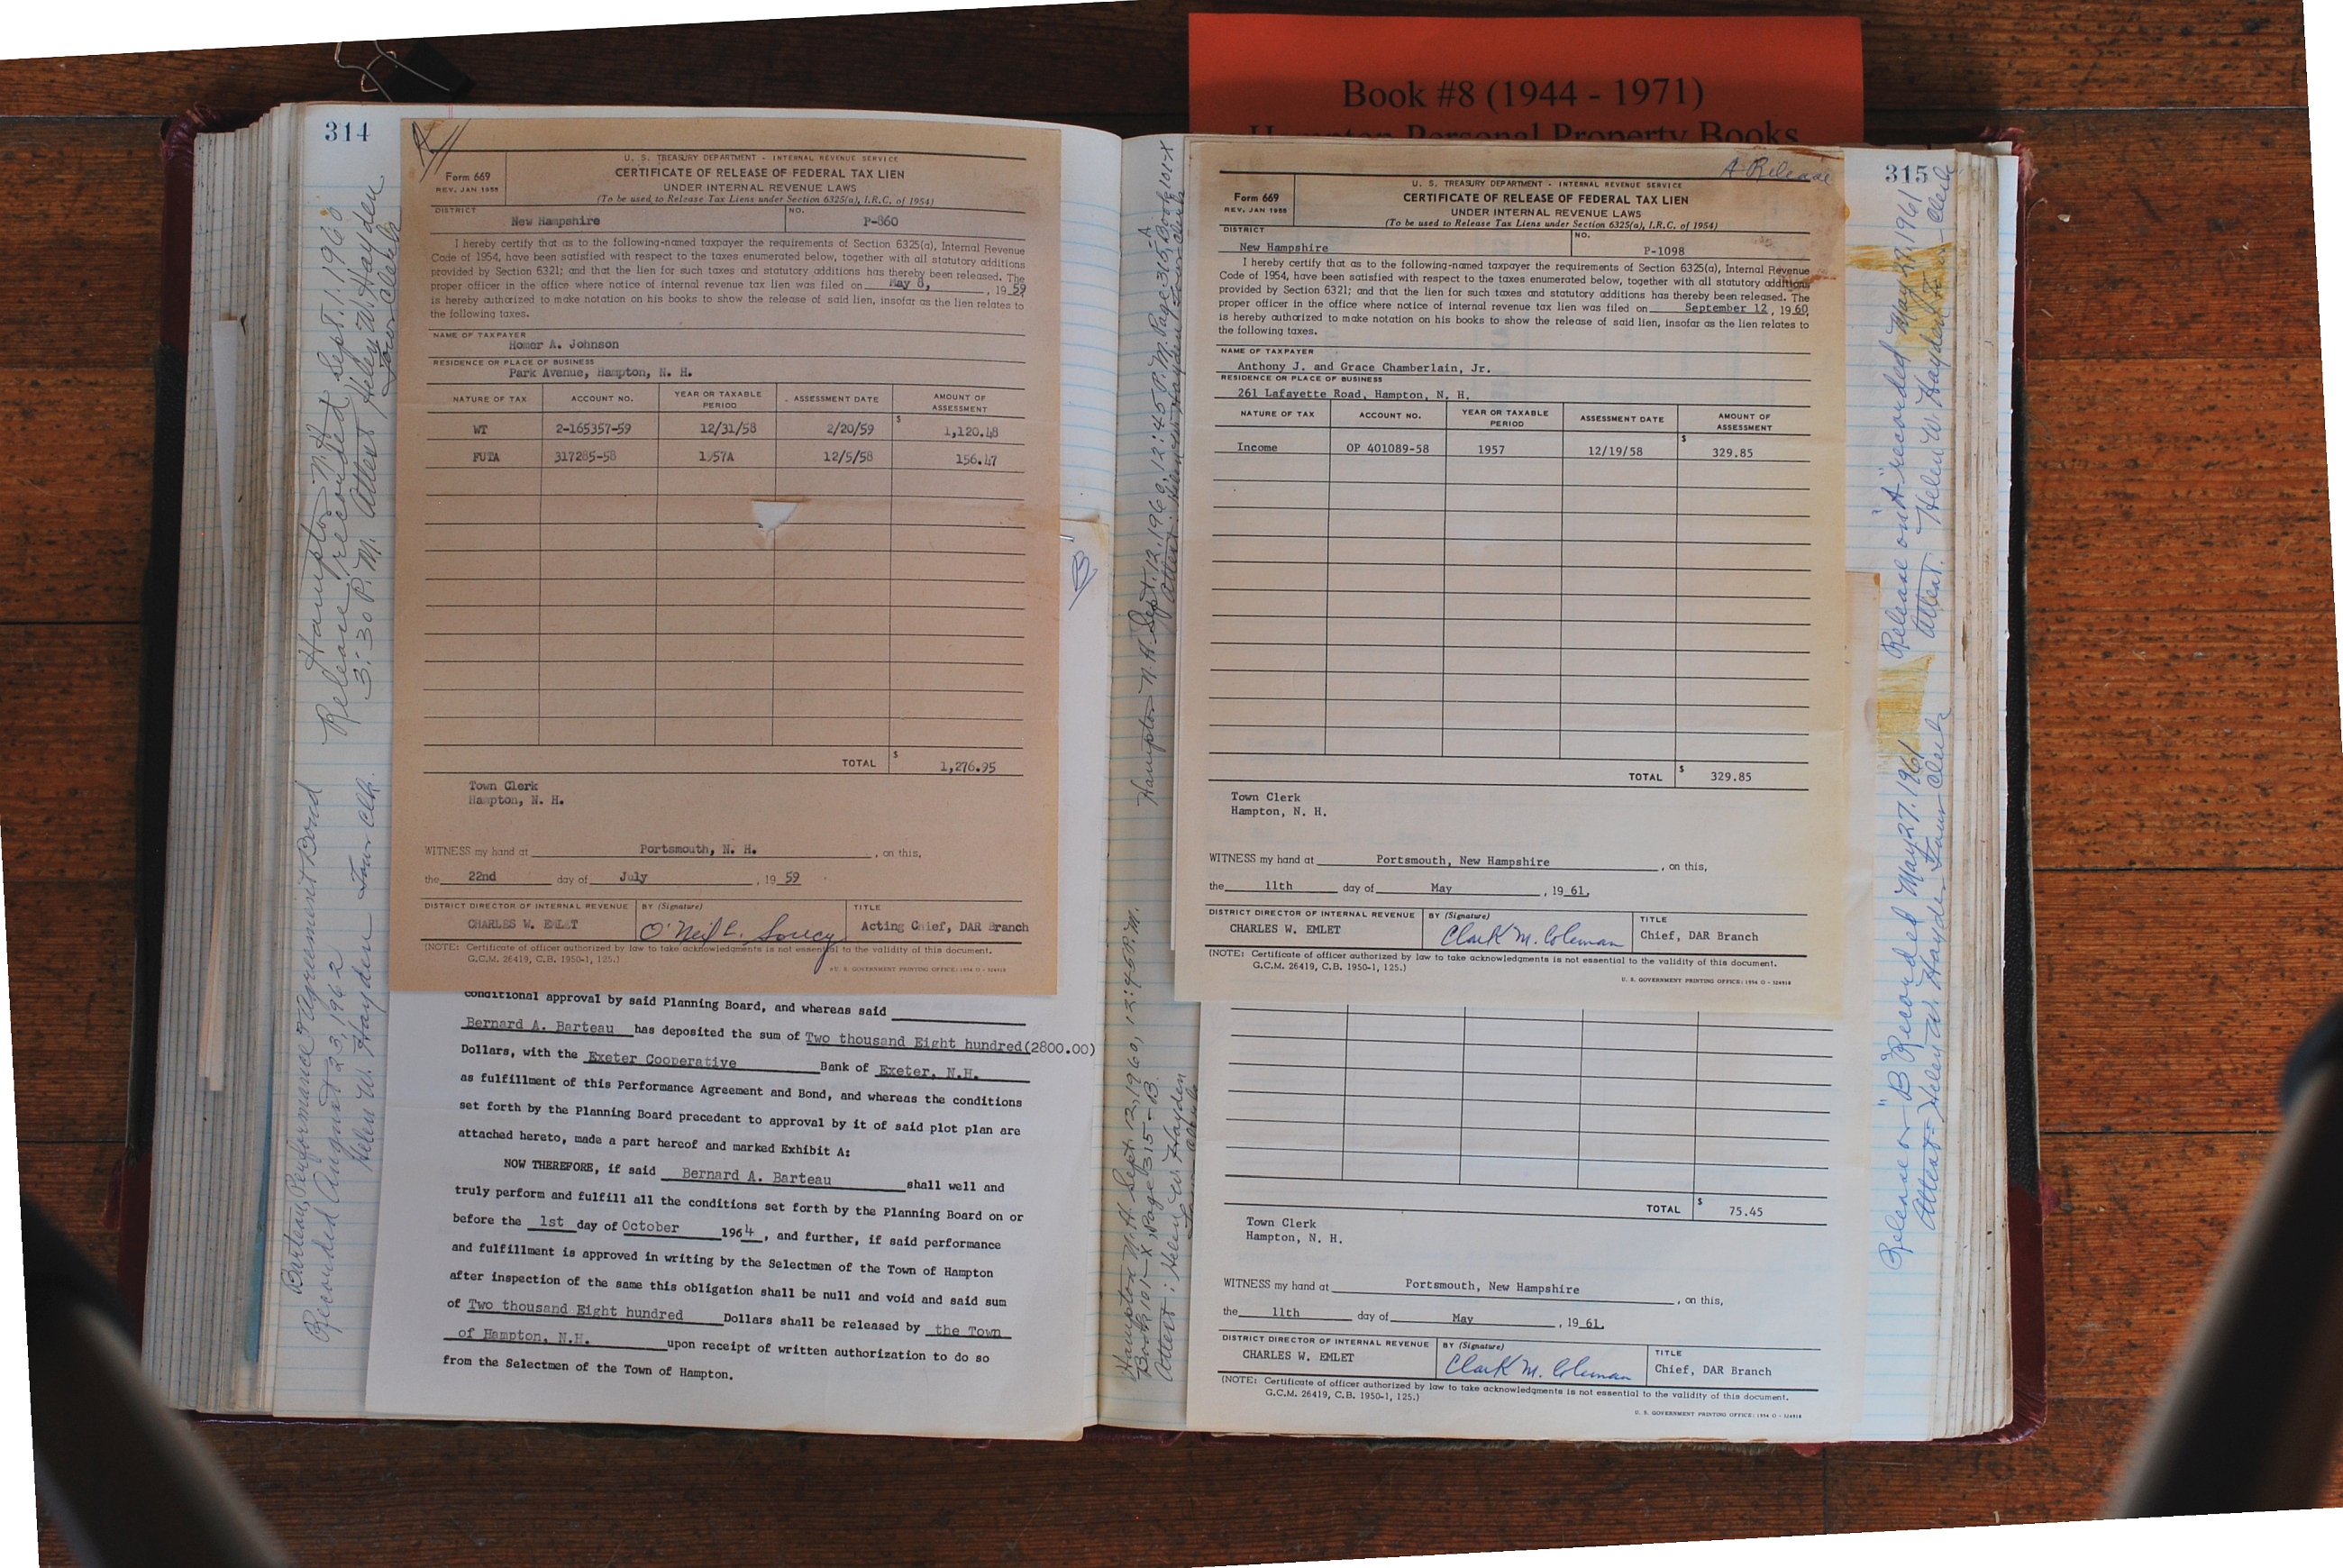 Book #8 (1944 - 1971)
Hampton Personal Property Books
314
Form 669
REV. JAN 1955
U. S. TREASURY DEPARTMENT - INTERNAL REVENUE SERVICE
CERTIFICATE OF RELEASE OF FEDERAL TAX LIEN
UNDER INTERNAL REVENUE LAWS
(To be used to Release Tax Liens under Section 6325(a), I.R.C. of 1954)
DISTRICT
New Hampshire
NO.
P-860
I hereby certify that as to the following-named taxpayer the requirements of Section 6325(a), Internal Revenue
Code of 1954, have been satisfied with respect to the taxes enumerated below, together with all statutory additions
provided by Section 6321; and that the lien for such taxes and statutory additions has thereby been released. The
proper officer in the office where notice of internal revenue tax lien was filed on May 8, , 19 59
is hereby authorized to make notation on his books to show the release of said lien, insofar as the lien relates to
the following taxes.
NAME OF TAXPAYER
Homer A. Johnson
RESIDENCE OR PLACE OF BUSINESS
Park Avenue, Hampton, N. H.
NATURE OF TAX ACCOUNT NO. YEAR OR TAXABLE PERIOD ASSESSMENT DATE AMOUNT OF ASSESSMENT
WT 2-165357-59 12/31/58 2/20/59 $ 1,120.48
FUTA 317285-58 1957A 12/5/58 156.47
TOTAL $ 1,276.95
Town Clerk
Hampton, N. H.
WITNESS my hand at Portsmouth, N. H. , on this,
the 22nd day of July , 19 59
DISTRICT DIRECTOR OF INTERNAL REVENUE BY (Signature) TITLE
CHARLES W. EMLET O'Neil E. Soucy Acting Chief, DAR Branch
(NOTE: Certificate of officer authorized by law to take acknowledgments is not essential to the validity of this document.
G.C.M. 26419, C.B. 1950-1, 125.)
U. S. GOVERNMENT PRINTING OFFICE: 1954 O - 324918
conditional approval by said Planning Board, and whereas said
Bernard A. Barteau has deposited the sum of Two thousand Eight hundred(2800.00)
Dollars, with the Exeter Cooperative Bank of Exeter, N.H.
as fulfillment of this Performance Agreement and Bond, and whereas the conditions
set forth by the Planning Board precedent to approval by it of said plot plan are
attached hereto, made a part hereof and marked Exhibit A:
NOW THEREFORE, if said Bernard A. Barteau shall well and
truly perform and fulfill all the conditions set forth by the Planning Board on or
before the 1st day of October 1964 , and further, if said performance
and fulfillment is approved in writing by the Selectmen of the Town of Hampton
after inspection of the same this obligation shall be null and void and said sum
of Two thousand Eight hundred Dollars shall be released by the Town
of Hampton, N.H. upon receipt of written authorization to do so
from the Selectmen of the Town of Hampton.
Hampton N.H.
Release recorded Sept. 1, 1960
3:30 P.M. Attest Helen W. Hayden
Town Clerk
Barteau, Performance & Agreement Bond
Recorded August 23, 1962
Helen W. Hayden Town Clk.
B
Hampton N.H. Sept. 12, 1960, 12:45 P.M. Page 315-A Book 101-X
Attest: Helen W. Hayden Town Clerk
Hampton N.H. Sept. 12, 1960, 12:45 P.M.
Book 101-X, Page 315-B
Attest: Helen W. Hayden
Town Clerk
315
A Release
Form 669
REV. JAN 1955
U. S. TREASURY DEPARTMENT - INTERNAL REVENUE SERVICE
CERTIFICATE OF RELEASE OF FEDERAL TAX LIEN
UNDER INTERNAL REVENUE LAWS
(To be used to Release Tax Liens under Section 6325(a), I.R.C. of 1954)
DISTRICT
New Hampshire
NO.
P-1098
I hereby certify that as to the following-named taxpayer the requirements of Section 6325(a), Internal Revenue
Code of 1954, have been satisfied with respect to the taxes enumerated below, together with all statutory additions
provided by Section 6321; and that the lien for such taxes and statutory additions has thereby been released. The
proper officer in the office where notice of internal revenue tax lien was filed on September 12 , 19 60,
is hereby authorized to make notation on his books to show the release of said lien, insofar as the lien relates to
the following taxes.
NAME OF TAXPAYER
Anthony J. and Grace Chamberlain, Jr.
RESIDENCE OR PLACE OF BUSINESS
261 Lafayette Road, Hampton, N. H.
NATURE OF TAX ACCOUNT NO. YEAR OR TAXABLE PERIOD ASSESSMENT DATE AMOUNT OF ASSESSMENT
Income OP 401089-58 1957 12/19/58 $ 329.85
TOTAL $ 329.85
Town Clerk
Hampton, N. H.
WITNESS my hand at Portsmouth, New Hampshire , on this,
the 11th day of May , 19 61.
DISTRICT DIRECTOR OF INTERNAL REVENUE BY (Signature) TITLE
CHARLES W. EMLET Clark M. Coleman Chief, DAR Branch
(NOTE: Certificate of officer authorized by law to take acknowledgments is not essential to the validity of this document.
G.C.M. 26419, C.B. 1950-1, 125.)
U. S. GOVERNMENT PRINTING OFFICE: 1954 O - 324918
TOTAL $ 75.45
Town Clerk
Hampton, N. H.
WITNESS my hand at Portsmouth, New Hampshire , on this,
the 11th day of May , 19 61.
DISTRICT DIRECTOR OF INTERNAL REVENUE BY (Signature) TITLE
CHARLES W. EMLET Clark M. Coleman Chief, DAR Branch
(NOTE: Certificate of officer authorized by law to take acknowledgments is not essential to the validity of this document.
G.C.M. 26419, C.B. 1950-1, 125.)
U. S. GOVERNMENT PRINTING OFFICE: 1954 O - 324918
Release on "A" recorded May 1961
Attest. Helen W. Hayden Town Clerk
Release on "B" Recorded May 27, 1961
Attest- Helen W. Hayden Town Clerk